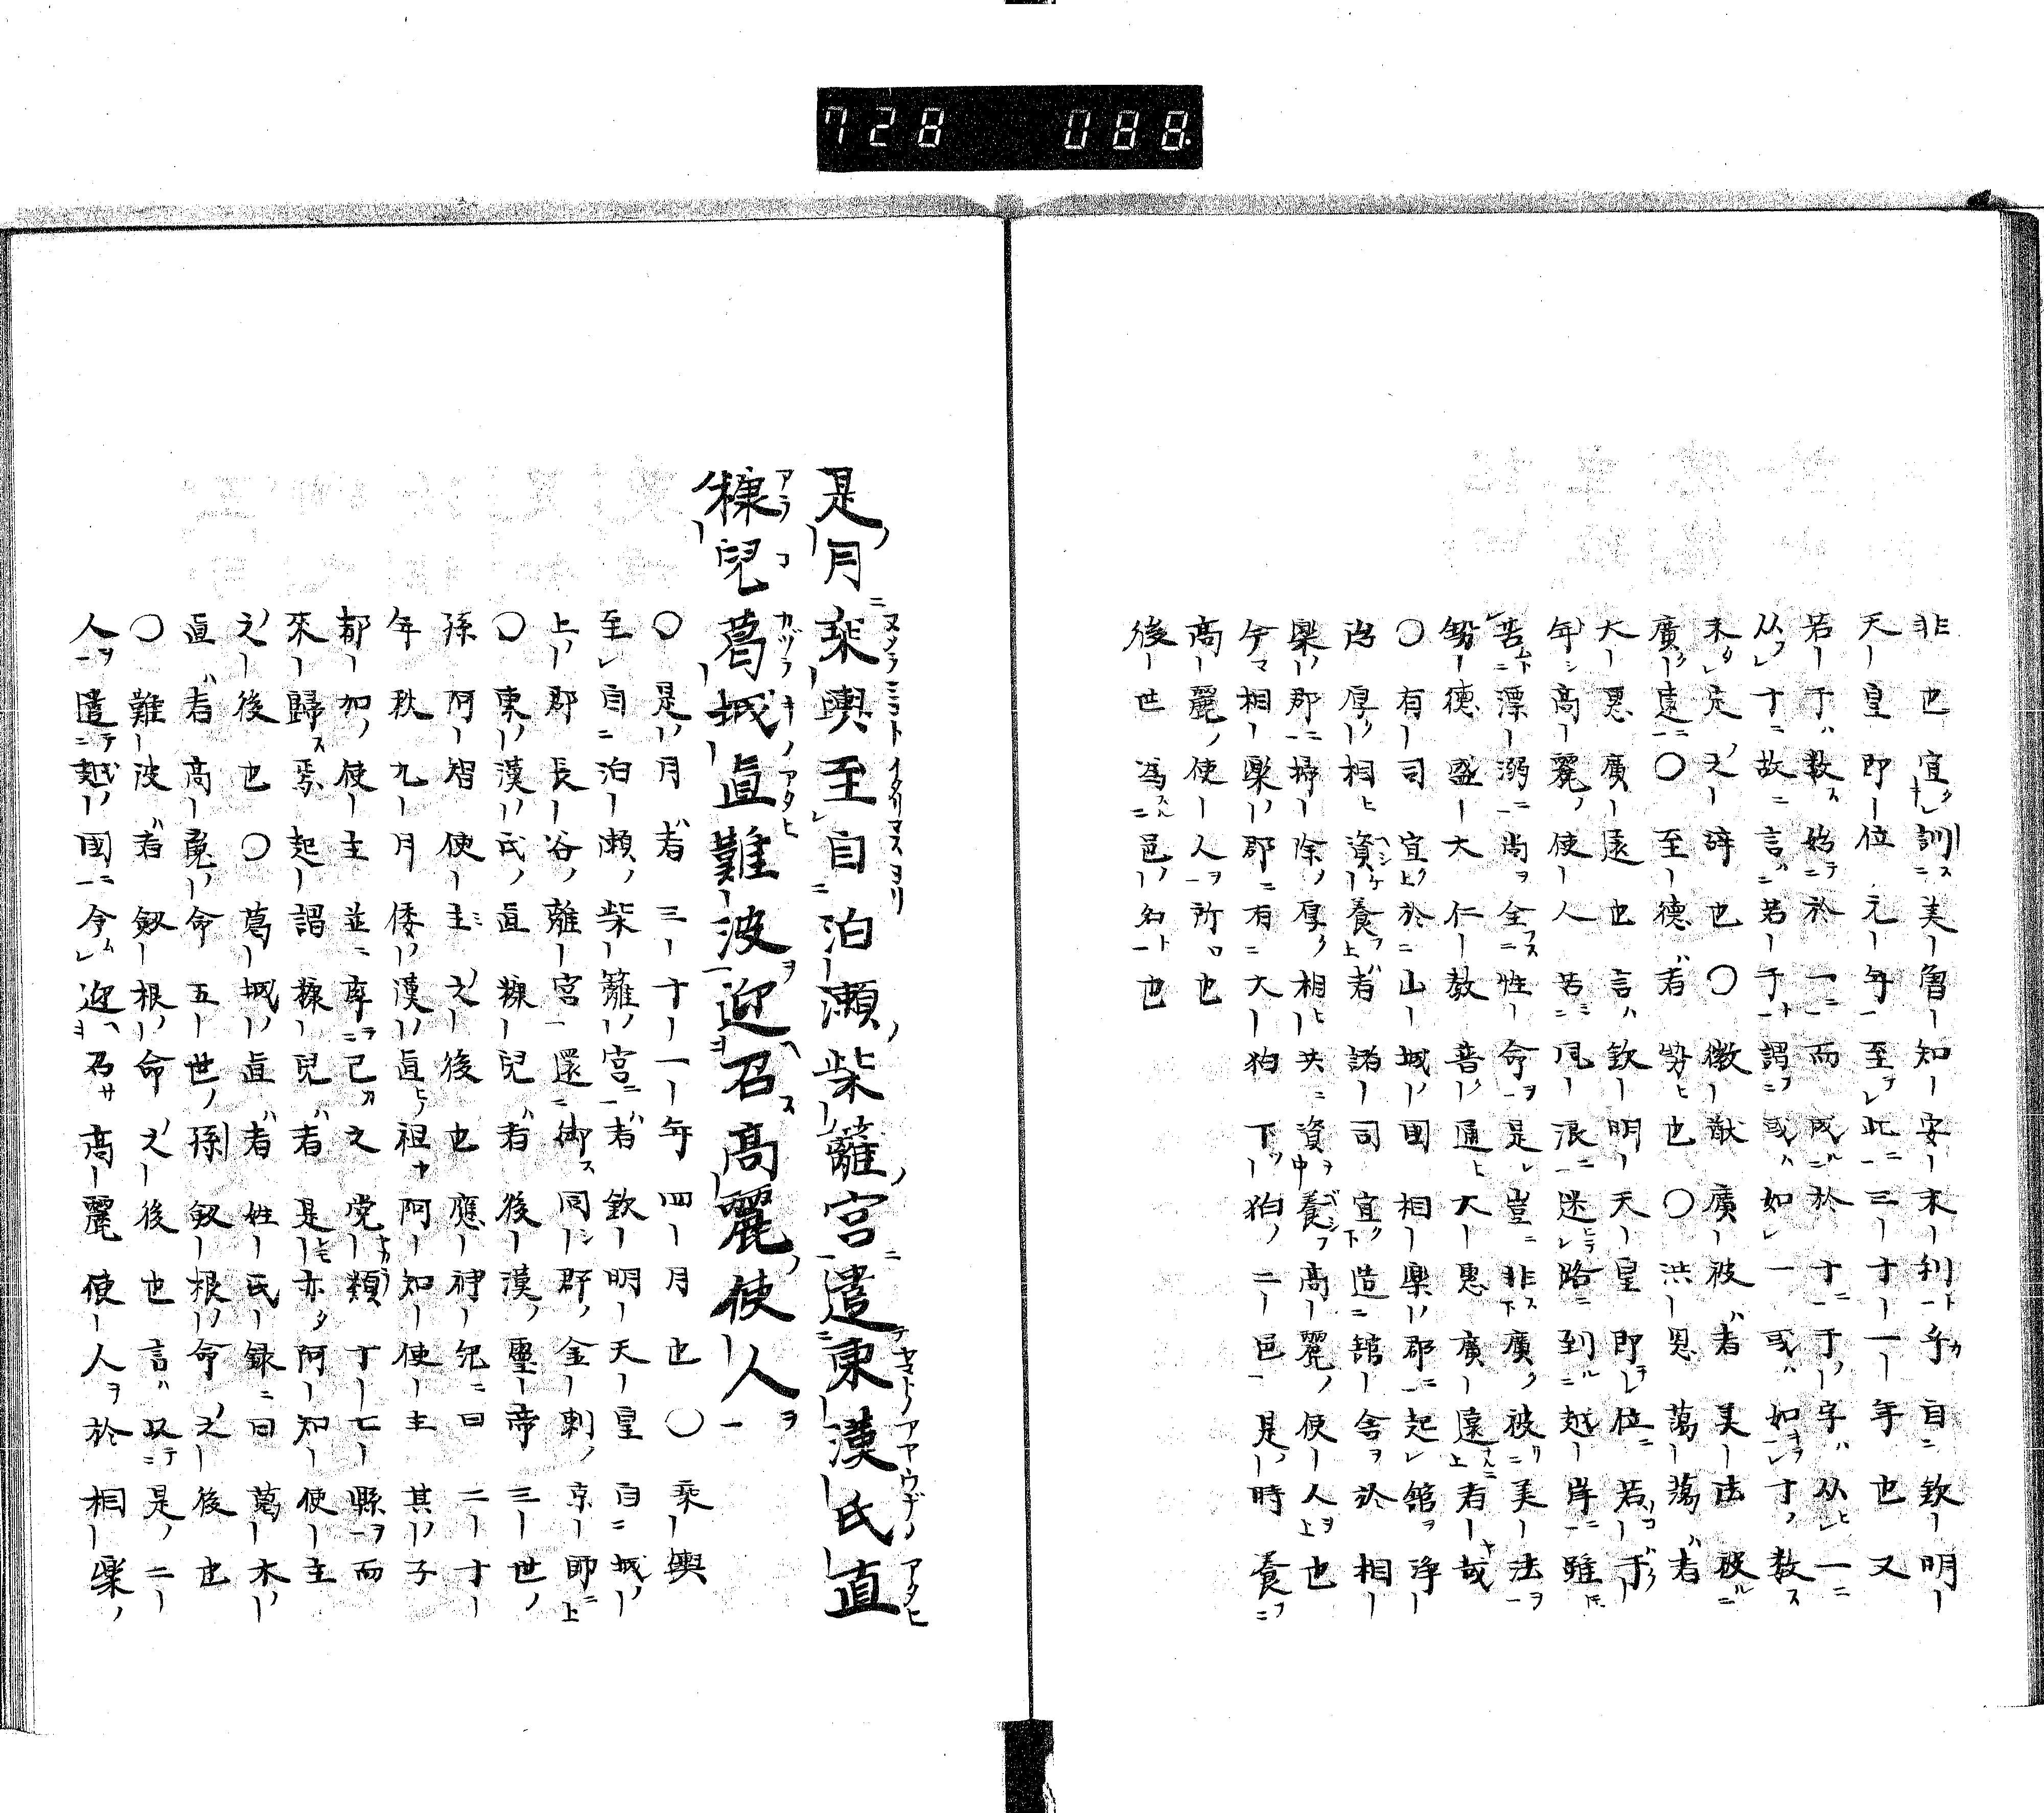 728 088
非也宜訓美魯知安末利乎自欽明
天皇即位元年至此三十一年也又
若于数始於一而成於十于字从一
从十故言若于謂或如一或如十数
未定之辞也〇徴猷廣被者美法被
廣遠〇至德者勢也〇洪恩蕩蕩者
大恩廣遠也言欽明天皇即位若于
年高麗使人苦風浪迷路到越岸雖
苦漂溺尚全性命是豈非廣被美法
勢德盛大仁教普通大惠廣遠者哉
〇有司宜於山城国相樂郡起館浄
治厚相資養者諸司宜造館舍於相
樂郡掃除厚相共資養高麗使人也
今相樂郡有大狛下狛二邑是時養
高麗使人所也
後世為邑名也
是月椉輿至自泊瀬柴籬宮遣東漢氏直
糠兒葛城直難波迎召高麗使人
〇是月者三十一年四月也〇乘輿
至自泊瀬柴籬宮者欽明天皇自城
上郡長谷離宮還御同郡金刺京師
〇東漢氏直糠兒者後漢靈帝三世
孫阿智使主之後也應神紀曰二十
年秋九月倭漢直祖阿知使主其子
都加使主並率己之党類十七縣而
來歸焉起謂糠兒者是亦阿知使主
之後也〇葛城直者姓氏録曰葛木
直者高魂命五世孫釼根命之後也
〇難波者釼根命之後也言以是二
人遣越国令迎召高麗使人於相楽